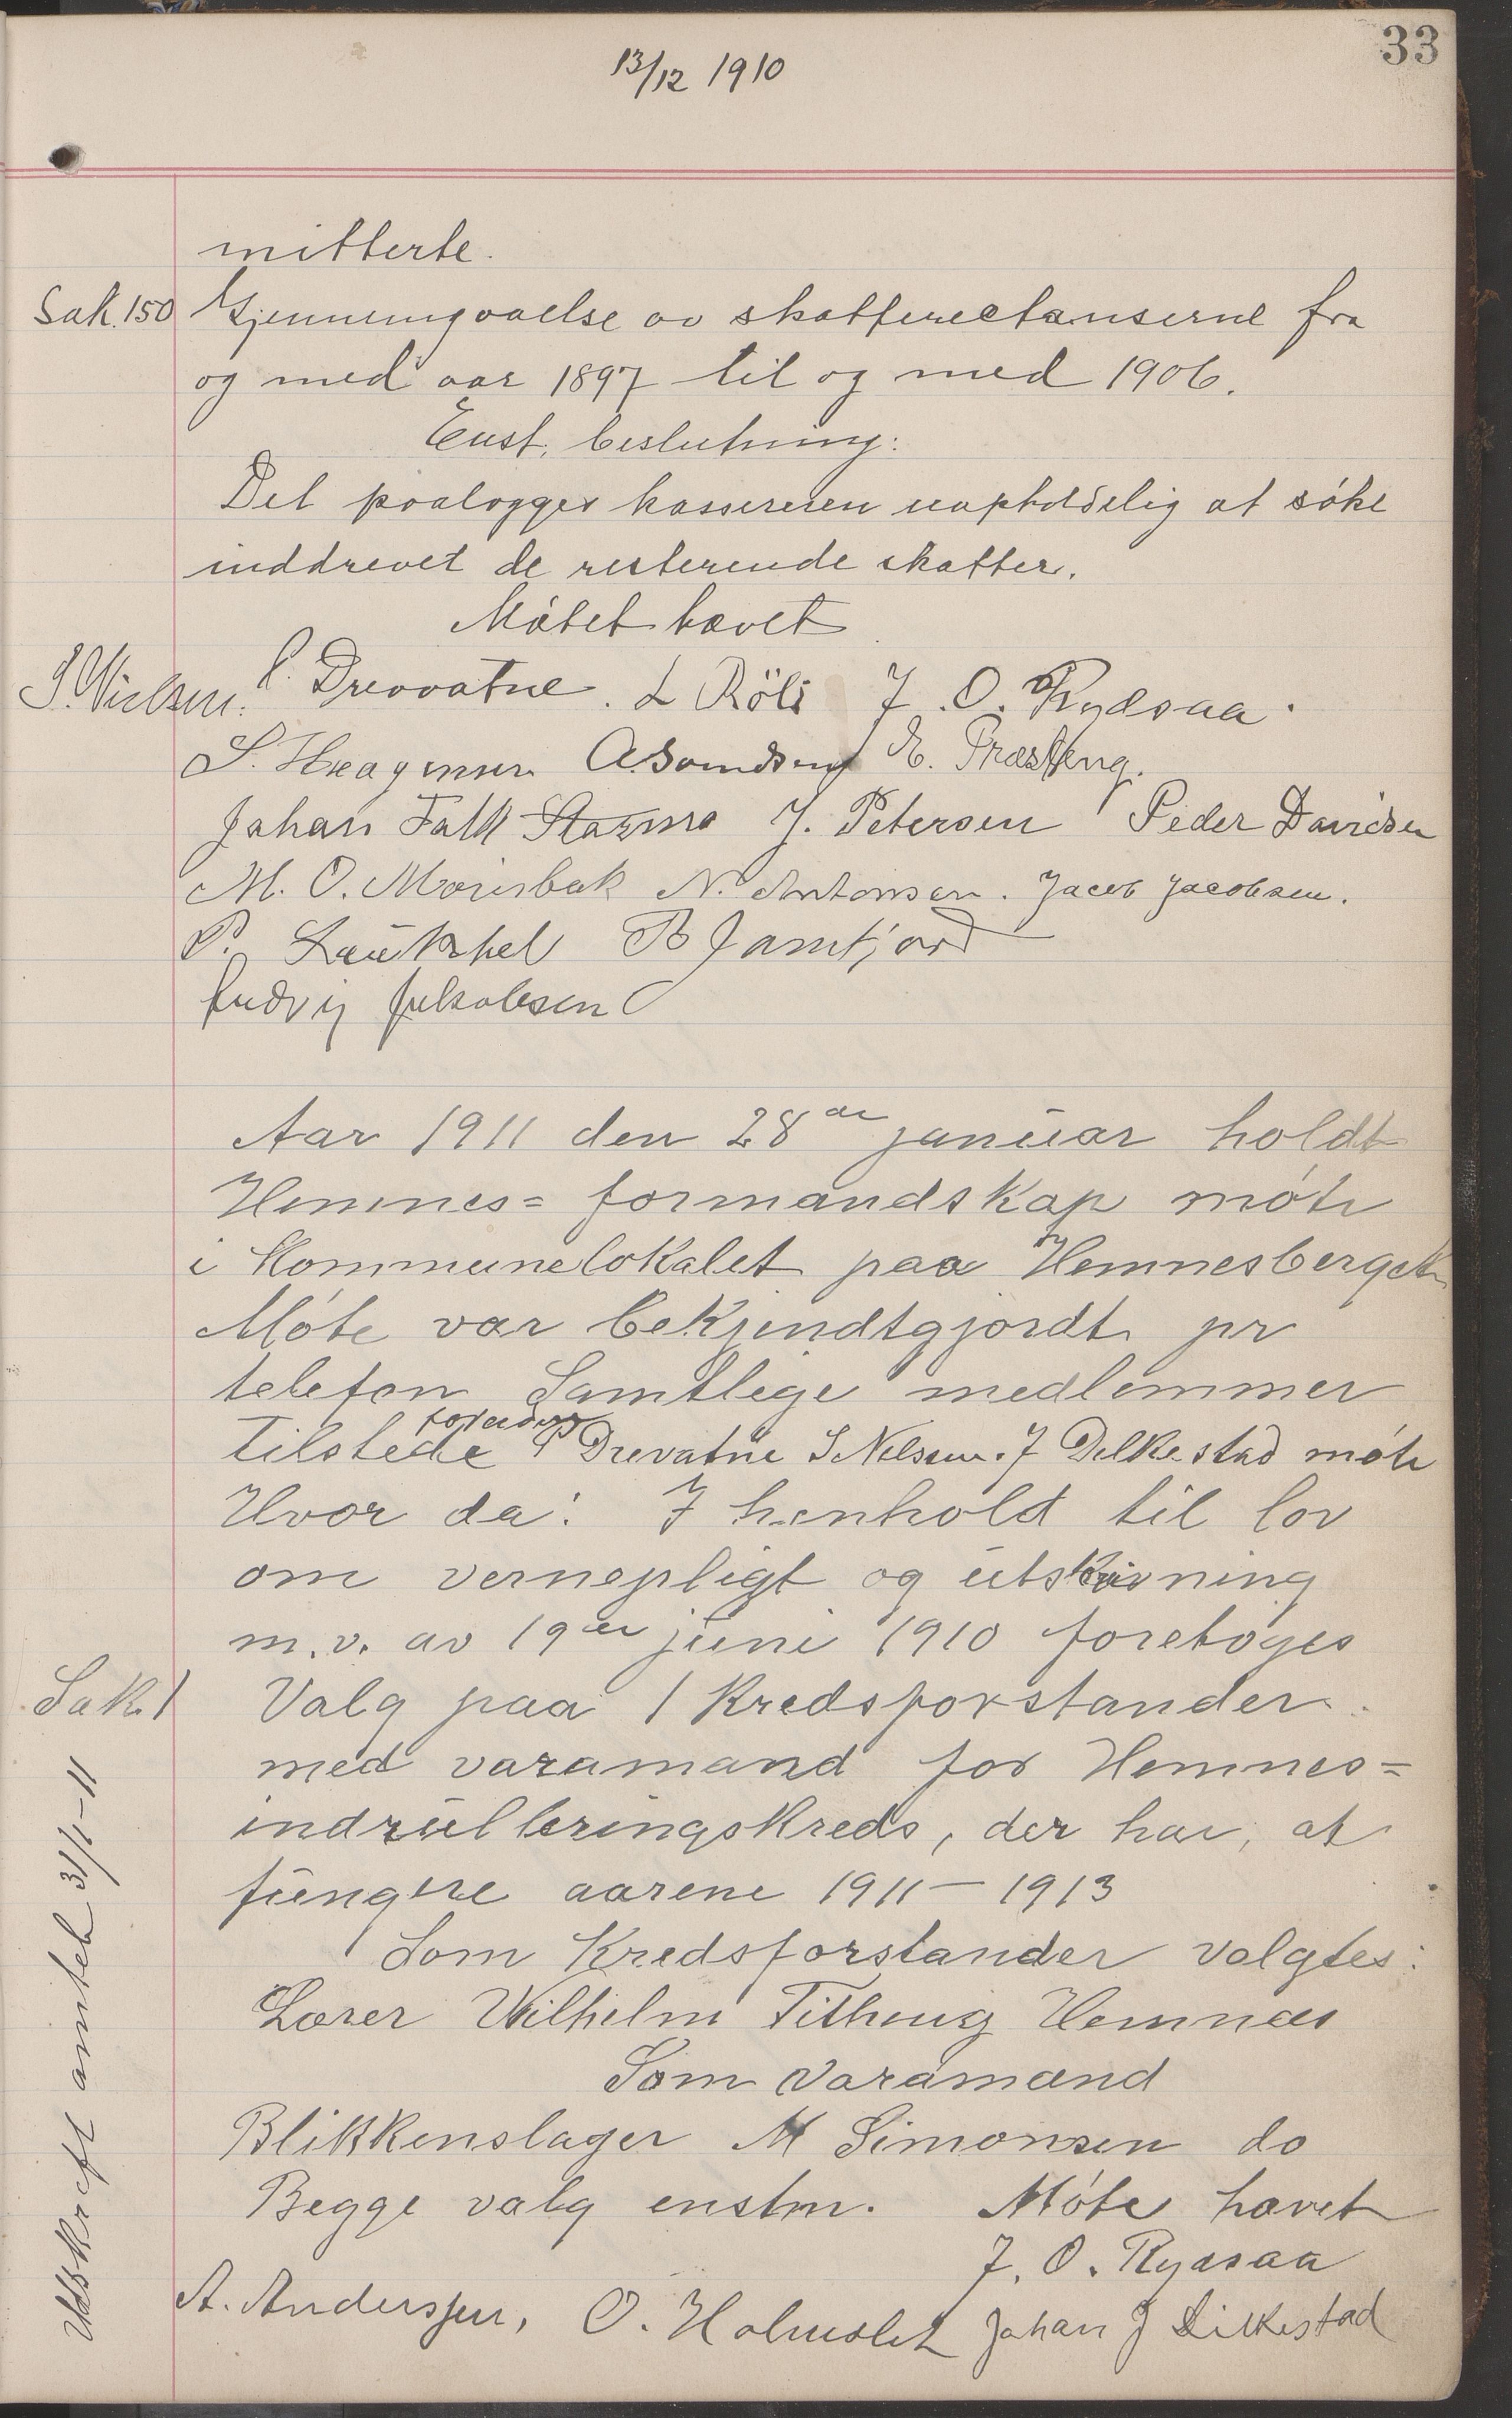 33
13/12 1910
mitterte.
Sak. 150 Gjennemgaaelse av skatterestanserne fra
og med aar 1897 til og med 1906.
Enst. beslutning:
Det paalægges kassereren uopholdelig at søke
inddrevet de resterende skatter.
Møtet hævet
S. Nielsen. P. Drevvatne. L Röli J. O. Rydsaa.
S. Haagensen A. Samdseng E. Præsteng.
Johan Falk Starmo J. Petersen Peder Davidsen
M. O. Morisbak N. Antonsen. Jacob Jacobsen.
P. B Jamtjord
Ludvig Jakobsen
Aar 1911 den 28de januar holdt
Hemnes= formandskap møte
i Kommunelokalet paa Hemnesberget
Møte var bekjendtgjordt pr
telefon Samtlige medlemmer
tilstede foruden P Drevatne S Nelssen. J Dilkestad møte
Hvor da: I henhold til lov
om vernepligt og utskrivning
m.v. av 19de juni 1910 foretoges
Sak. 1 Valg paa 1 Kredsforstander
med varamand for Hemnes=
indrulleringskreds, der har, at
fungere aarene 1911 – 1913
Som Kredsforstander valgtes:
Lærer Wilhelm Hemnes
Som varamand
Blikkenslager M Simonsen do
Begge valg enstm. Møte hævet
J. O. Rydsaa
A. Anderssen, O. Holmslet Johan J Dilkestad
Utskrift amtet 31/1-11